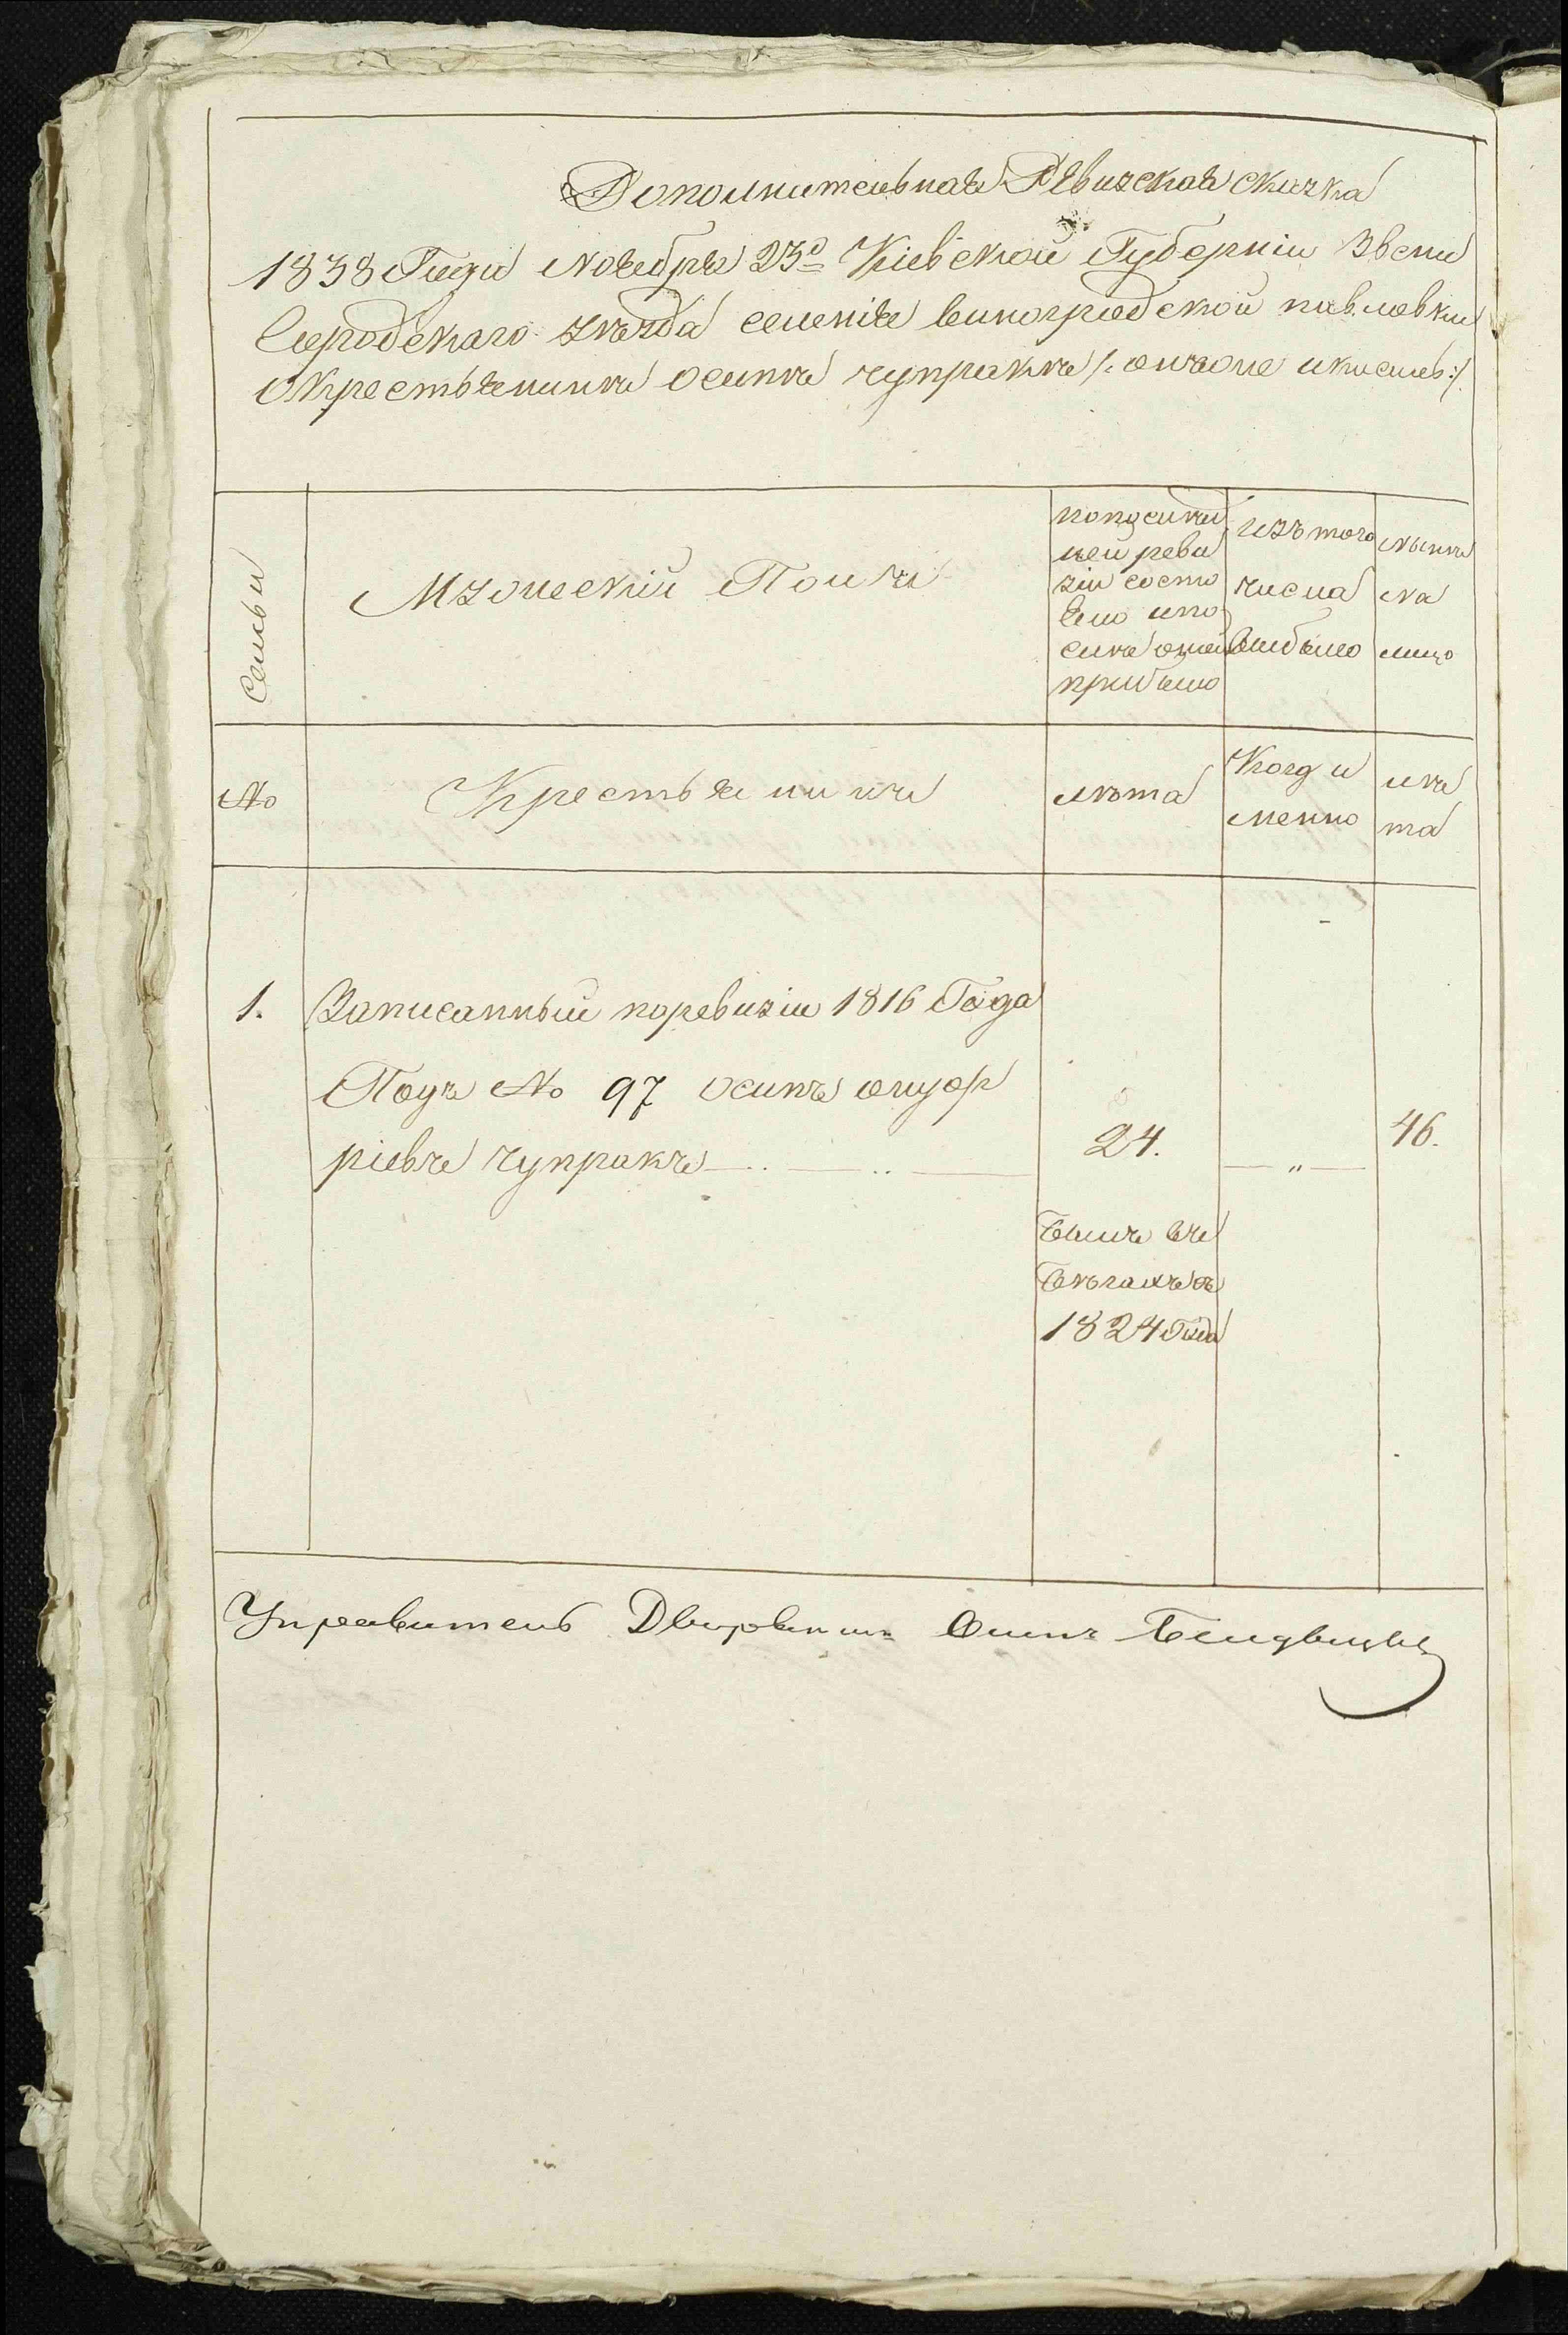 Дополнительная Ревизская сказка
1838 Года Ноября 23º Кіевской Губерніи Звени
городскаго уѣзда селенія виноградской павловки
Окрестьянинѣ осипѣ чупракѣ
Семьи
Мужескій Полъ
По послѣд
ней реви
зіи состо
яло и по
слѣ оной
прибыло
изъ того
числа
выбыло
нынѣ
на
лицо
№
Крестьянинъ
лѣта
Когда и
менно
лѣ
та
1. Записанный поревизіи 1816 Года
Подъ № 97 осипъ
ріевъ чупракъ 24. — „ — 46.
былъ въ
бѣгахъ съ
1824 Года
Управитель Дворянинъ Осипъ